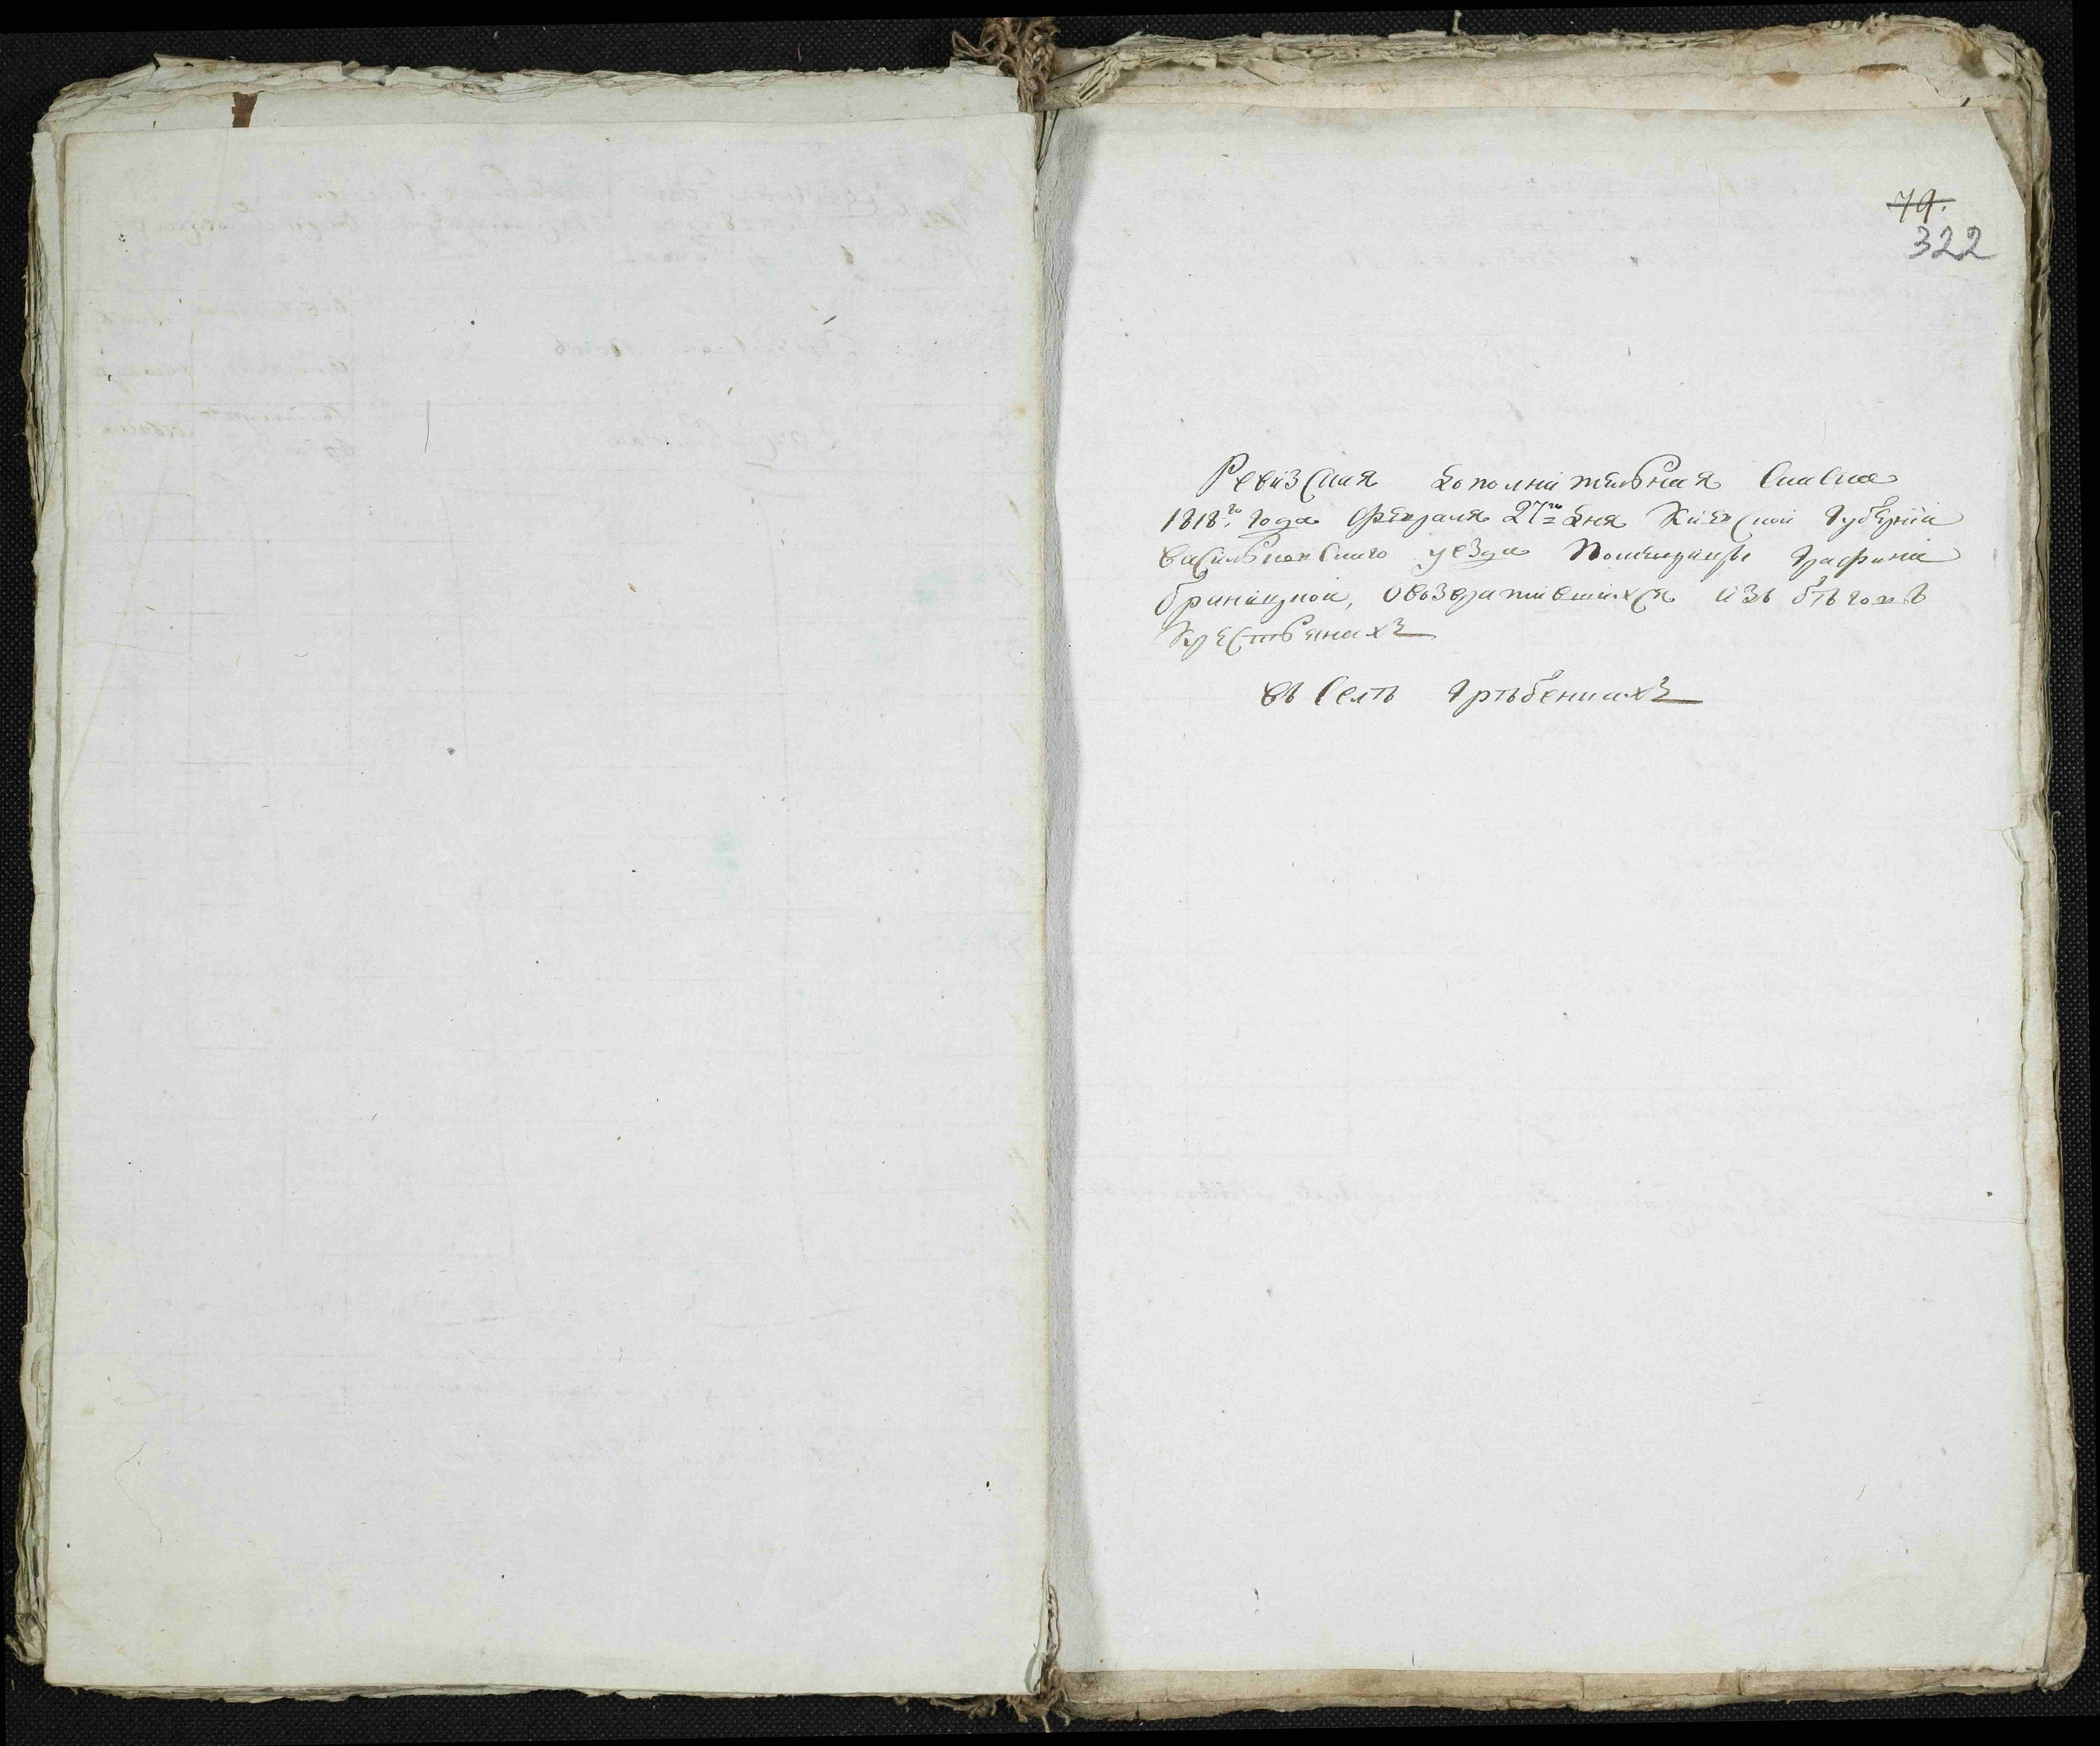 79.
322
Ревизская дополнительная Сказка
1818го. года февраля 27го дня Киевской Губернии
васильковскаго уезда Помещицы Графини
браницкой, овозвратившихся изъ бѣговъ
Крестьянахъ
въ Селѣ Грѣбенкахъ